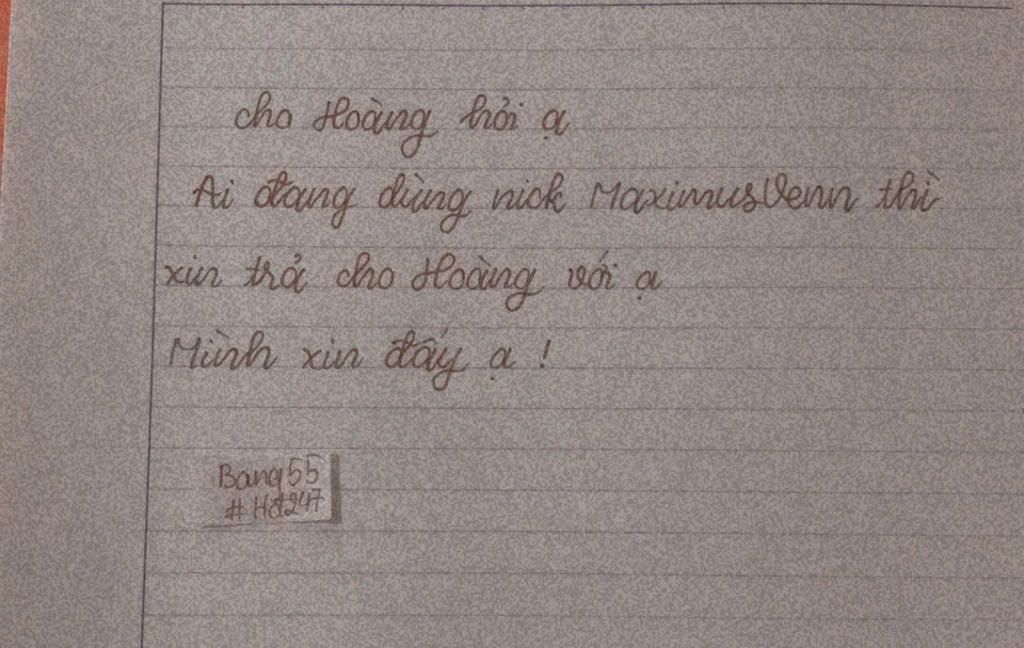 cho Hoàng hỏi ạ
Ai đang dùng nick MaximusVenn thì
xin trả cho Hoàng với ạ
Mình xin đấy ạ !
Bang55
#Hđ247